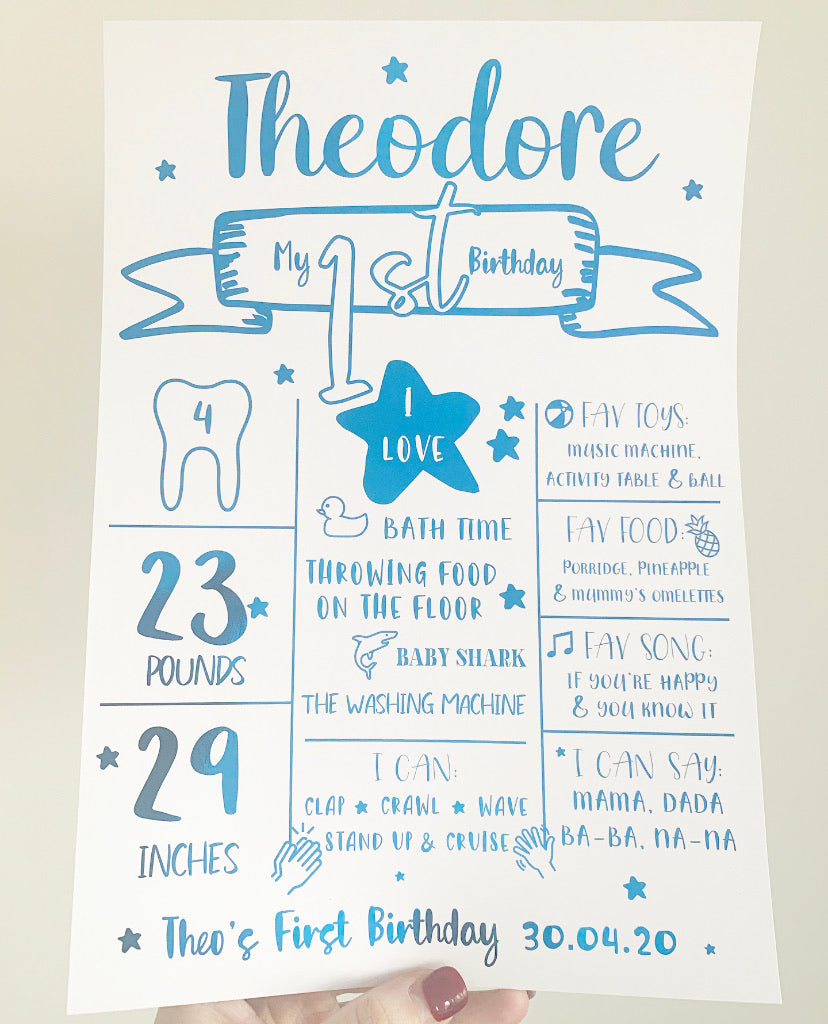 Theodore
My 1st Birthday
4
23
POUNDS
29
INCHES
I
LOVE
BATH TIME
THROWING FOOD
ON THE FLOOR
BABY SHARK
THE WASHING MACHINE
I CAN:
CLAP ★ CRAWL ★ WAVE
STAND UP & CRUISE
FAV TOYS:
MUSIC MACHINE,
ACTIVITY TABLE & BALL
FAV FOOD:
PORRIDGE, PINEAPPLE
& MUMMY'S OMELETTES
FAV SONG:
IF YOU'RE HAPPY
& YOU KNOW IT
I CAN SAY:
MAMA, DADA
BA-BA, NA-NA
Theo's First Birthday 30.04.20